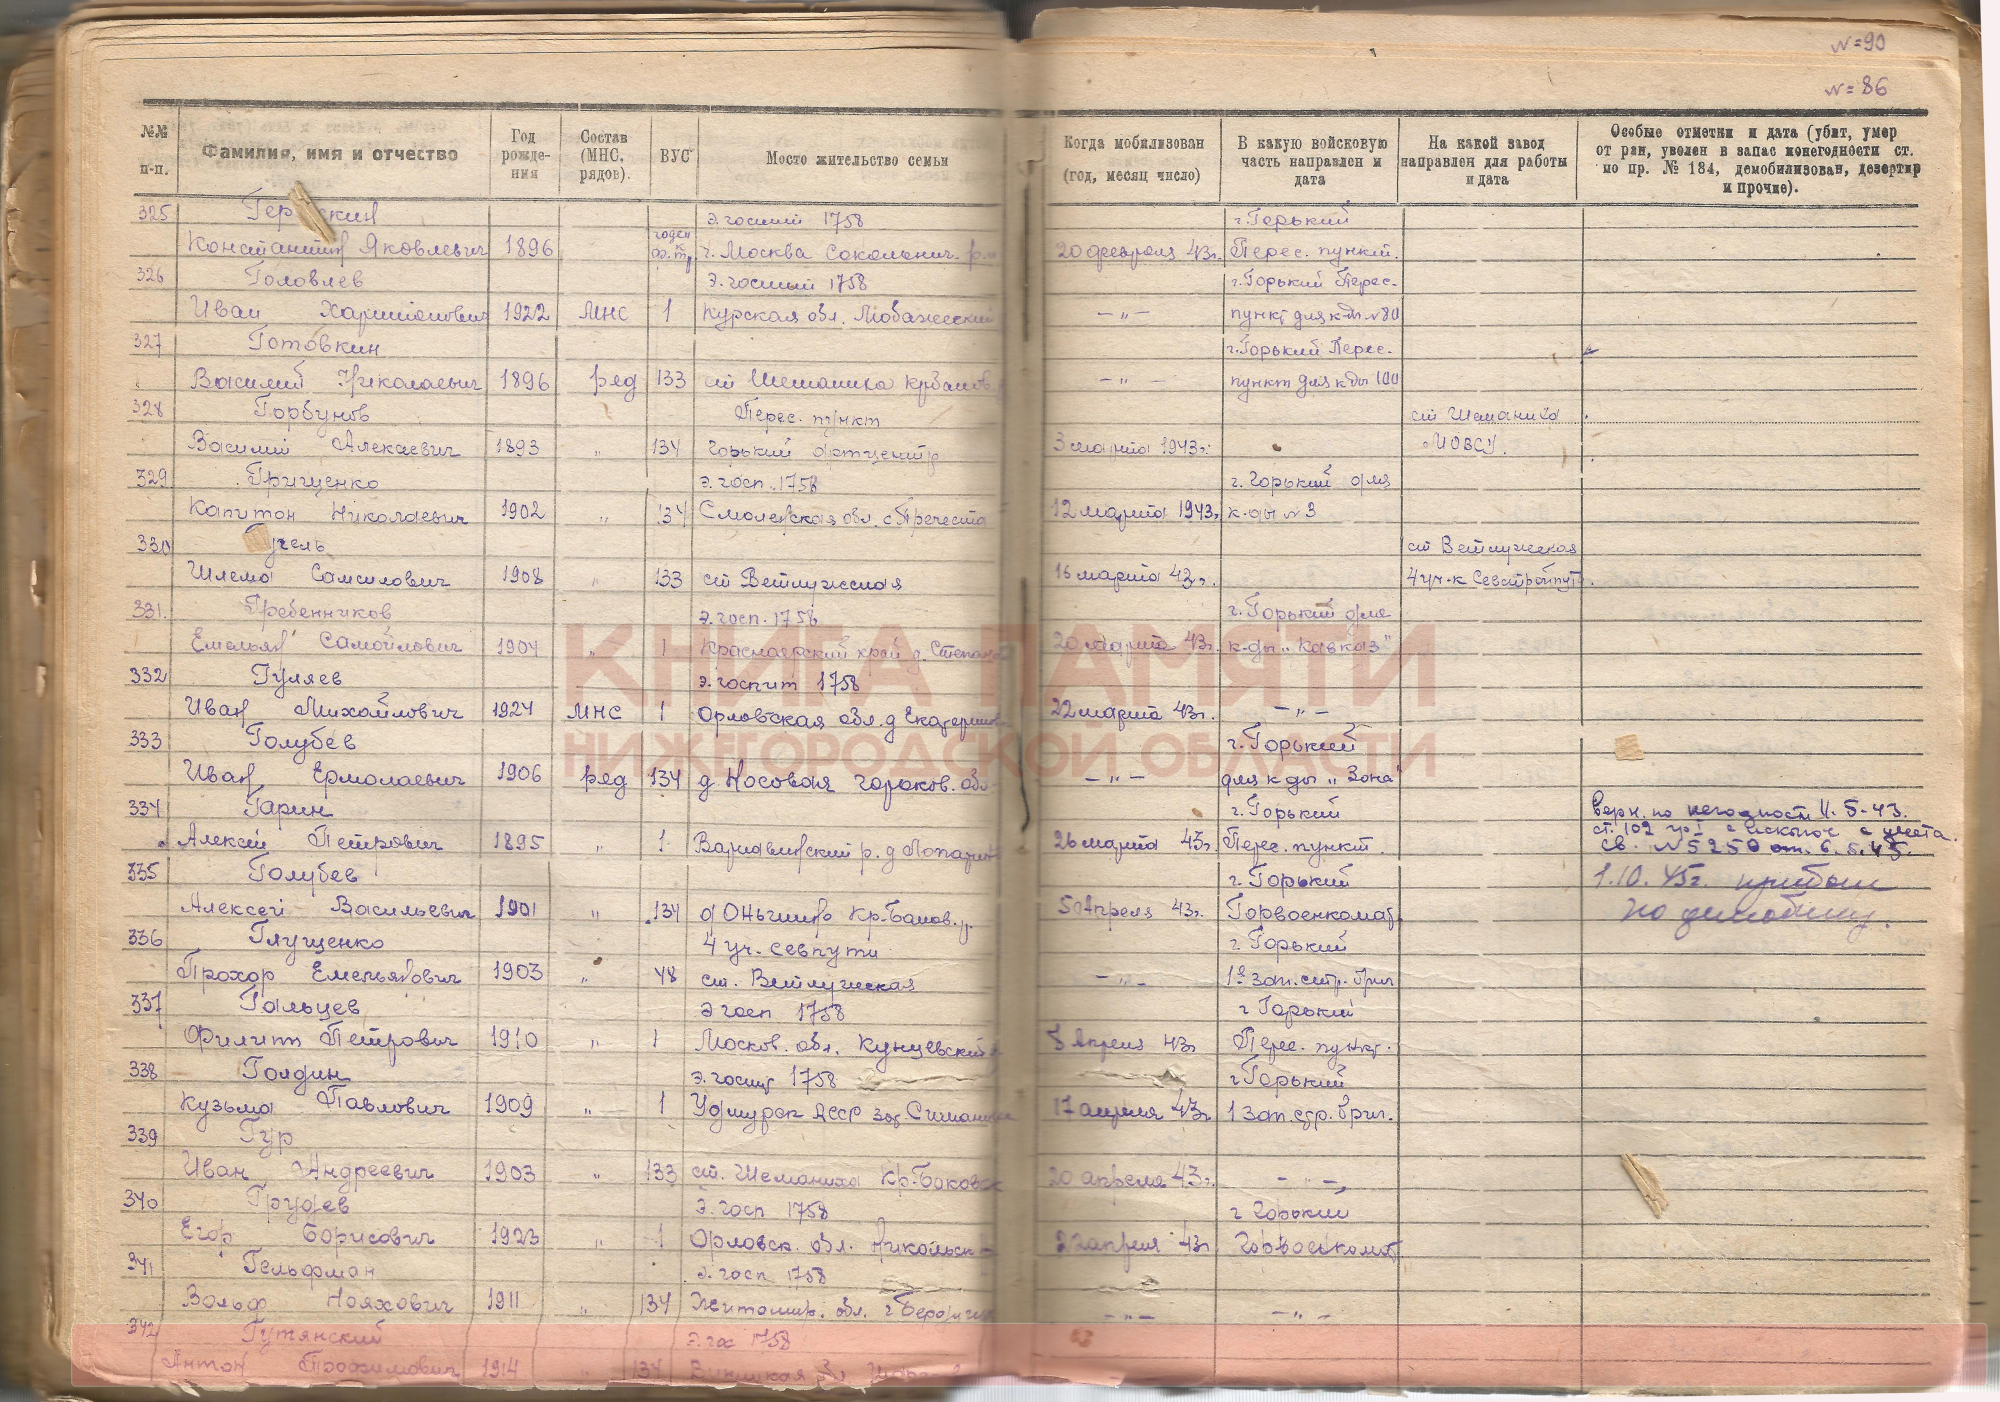 N=90
N=86
№№ п-п. Фамилия, имя и отчество Год рожде-ния Состав (МНС, рядов). ВУС Место жительство семьи Когда мобилизован (год, месяц число) В какую войсковую часть направлен и дата На какой завод направлен для работы и дата Особые отметки и дата (убит, умер от ран, уволен в запас понегодности ст. по пр. № 184, демобилизован, дезертир и прочие).
325 э. госпит 1758 г. Горький
Константин Яковлевич 1896 годен г. Москва Сокольнич. 20 февраля 43г. Перес. пункт.
326 Головлев э. госпит 1758 г. Горький Перес.
Иван 1922 МНС 1 Курская обл. —„— пункт для к-ды N 80
327 Готовкин г. Горький Перес.
Василий Николаевич 1896 ряд 133 ст Шеманиха —„— пункт для к-ды 100
328 Горбунов Перес. пункт ст Шеманиха
Василий Алексеевич 1893 „ 134 Горький 3 марта 1943г. МОВСУ.
329 Грищенко э. госп. 1758 г. Горький для
Капитон Николаевич 1902 „ 134 Смоленская обл. 12 марта 1943г. к-ды N 3
330 ст Ветлужская
Шлема Самсилович 1908 „ 133 ст Ветлужская 16 марта 43г. 4 уч-к Севстройпуть
331. Гребенников э. госп. 1758 г. Горький для
Емельян Самойлович 1904 „ 1 Красноярский край д. 20 марта 43г. к-ды „Кавказ"
332 Гуляев э. госпит 1758
Иван Михайлович 1924 МНС 1 Орловская обл. д 22 марта 43г. —„—
333 Голубев г. Горький
Иван Ермолаевич 1906 ряд 134 д. Носовая горьков. обл —„— для к-ды „Зона"
334 Гарин г. Горький верн. по негодност. 11.5-43.
Алексей Петрович 1895 „ 1 Варнавинский р. д 26 марта 43г. Перес. пункт. ст. 102 с учета.
св. N 5250 от. 6.5.45.
335 Голубев г. Горький 1.10.45г. прибыл
Алексей Васильевич 1901 „ 134 Кр-Баков. р. 5 апреля 43г. Горвоенкомат по
336 Глущенко 4 уч. Севпути г. Горький
Прохор Емельянович 1903 „ 48 ст. Ветлужская —„— 1я зап. стр. бриг
337 Гальцев э госп 1758 г Горький
Филипп Петрович 1910 „ 1 Москов. обл. Кунцевский 8 Апреля 43г Перес. пункт.
338 Голдин э. госпит 1758 г Горький
Кузьма Павлович 1909 „ 1 Удмурск АССР 17 апреля 43г 1 зап. стр. бриг.
339 Гур
Иван Андреевич 1903 „ 133 ст. Шеманиха Кр-Баковск 20 апреля 43г. —„—
340 Грудев э. госп 1758 г Горький
Егор Борисович 1923 „ 1 Орловск. обл. Никольск 22 апреля 43г Горвоенкомат
341 Гельфман э. госп 1758
Вольф Нояхович 1911 „ 134 Житомир. обл. г —„— —„—
342 Гутянский э. гос 1758
Антон Трофимович 1914 „ 134
КНИГА ПАМЯТИ
НИЖЕГОРОДСКОЙ ОБЛАСТИ